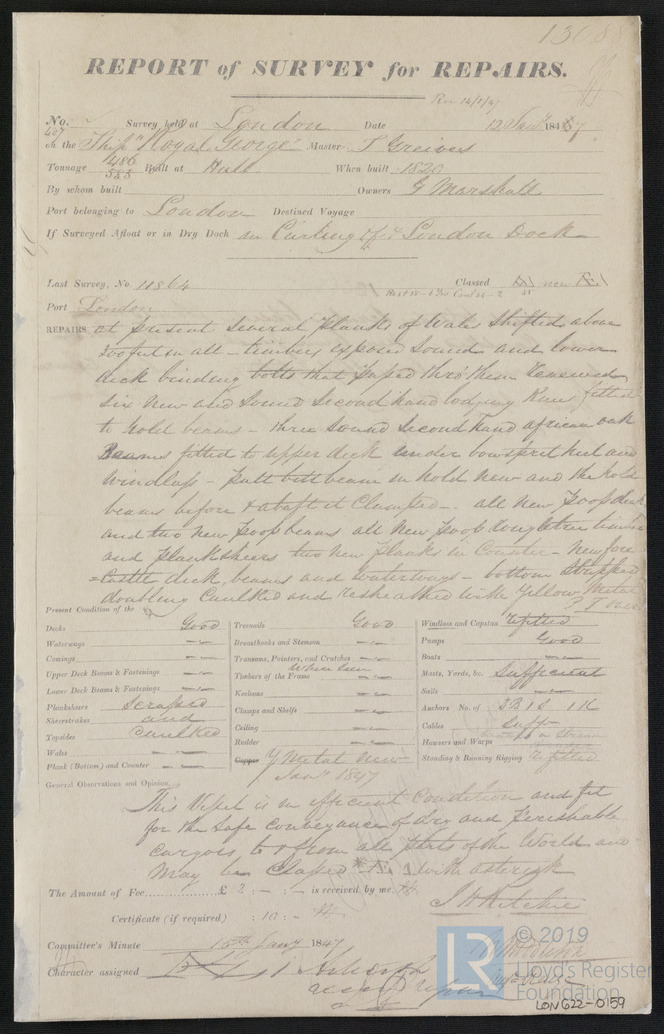 REPORT of SURVEY for REPAIRS.
No. 407 Survey held at London Date 12 Jany 1847
on the Ship "Royal George" Master T Greives
Tonnage 486 583 Built at Hull When built 1820
By whom built Owners G Marshall
Port belonging to London Destined Voyage
If Surveyed Afloat or in Dry Dock in Curling & London Dock
Last Survey, No. 11864 Classed Æ 1
Port London
REPAIRS at present Several Planks of Wales Shifted above
in all - timbers exposed Sound and lower
deck binding bolts that passed thro' them renewed
Six New and Sound Second hand lodging Knees fitted
to hold beams - three Sound Second hand african oak
Beams fitted to upper deck under bowsprit heel and
Windlass - beam in hold New and the hold
beams before & abaft it Clamped - all new Poop deck
and two new Poop beams all New Poop timbers
and Planksheers two new Planks in Counter - New fore
=Castle deck, beams and waterways - bottom Stripped
doubling Caulked and resheathed with Yellow Metal
Present Condition of the
Decks Good
Waterways
Comings
Upper Deck Beams & Fastenings
Lower Deck Beams & Fastenings
Planksheers Scraped
Sheerstrakes and
Topsides Caulked
Wales
Plank (Bottom) and Counter
Treenails Good
Breasthooks and Stemson
Transoms, Pointers, and Crutches
Timbers of the Frame Where Seen
Keelsons
Clamps and Shelfs
Ceiling
Rudder
Copper Y Metal New
Jany 1847
Windlass and Capstan Refitted
Pumps Good
Boats
Masts, Yards, &c. Sufficient
Sails
Anchors No. of 3B 1S 1K
Cables Sufft
Hawsers and Warps
Standing & Running Rigging Refitted
General Observations and Opinion,
This Vessel is in efficient Condition and fit
for the Safe conveyance of dry and perishable
cargoes to & from all parts of the World and
May be Classed *Æ 1 with asterisk
The Amount of Fee £ 2 : - : - is received by me
J H Ritchie
Certificate (if required) : 10 : -
Committee's Minute 15th Jany 1847
Character assigned
© 2019
Lloyd's Register
Foundation
LON622-0159